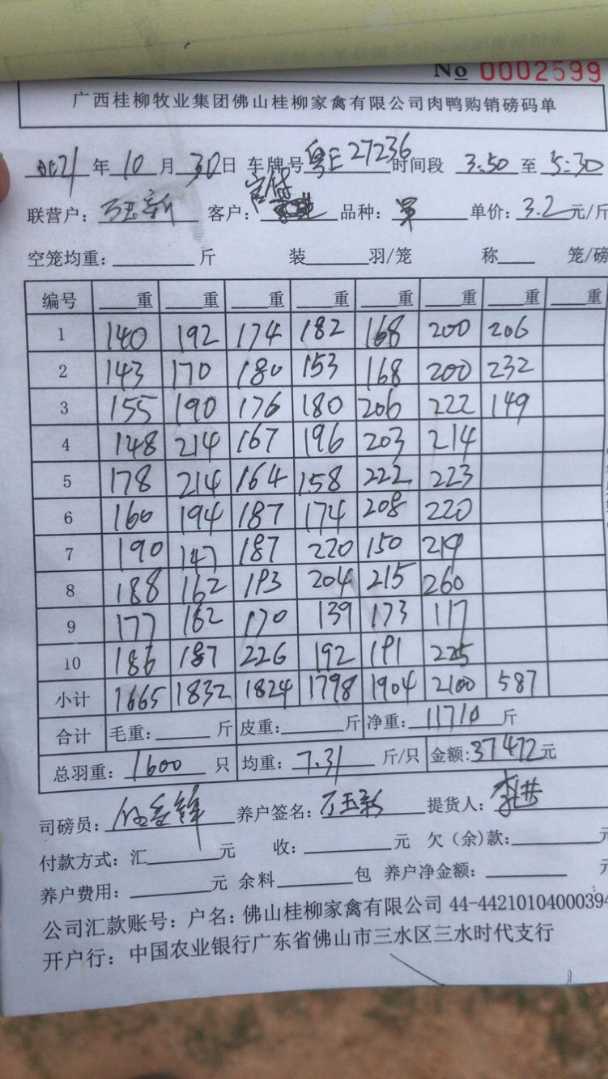 No 0002599
广西桂柳牧业集团佛山桂柳家禽有限公司肉鸭购销磅码单
2021 年 10 月 30 日 车牌号 粤E27236 时间段 3:50 至 5:30
联营户: 万玉新 客户: 品种: 单价: 3.2 元/斤
空笼均重: 斤 装 羽/笼 称 笼/磅
编号 重 重 重 重 重 重 重 重
1 140 192 174 182 168 200 206
2 143 170 180 153 168 200 232
3 155 190 176 180 206 222 149
4 148 214 167 196 203 214
5 178 214 164 158 222 223
6 160 194 187 174 208 220
7 190 147 187 220 150 219
8 188 162 193 204 215 260
9 177 162 170 139 173 117
10 186 187 226 192 191 225
小计 1665 1832 1824 1798 1904 2100 587
合计 毛重: 斤 皮重: 斤 净重: 11710 斤
总羽重: 1600 只 均重: 7.31 斤/只 金额: 37472 元
司磅员: 养户签名: 万玉新 提货人:
付款方式: 汇 元 收: 元 欠(余)款: 元
养户费用: 元 余料 包 养户净金额: 元
公司汇款账号: 户名: 佛山桂柳家禽有限公司 44-44210104000394
开户行: 中国农业银行广东省佛山市三水区三水时代支行